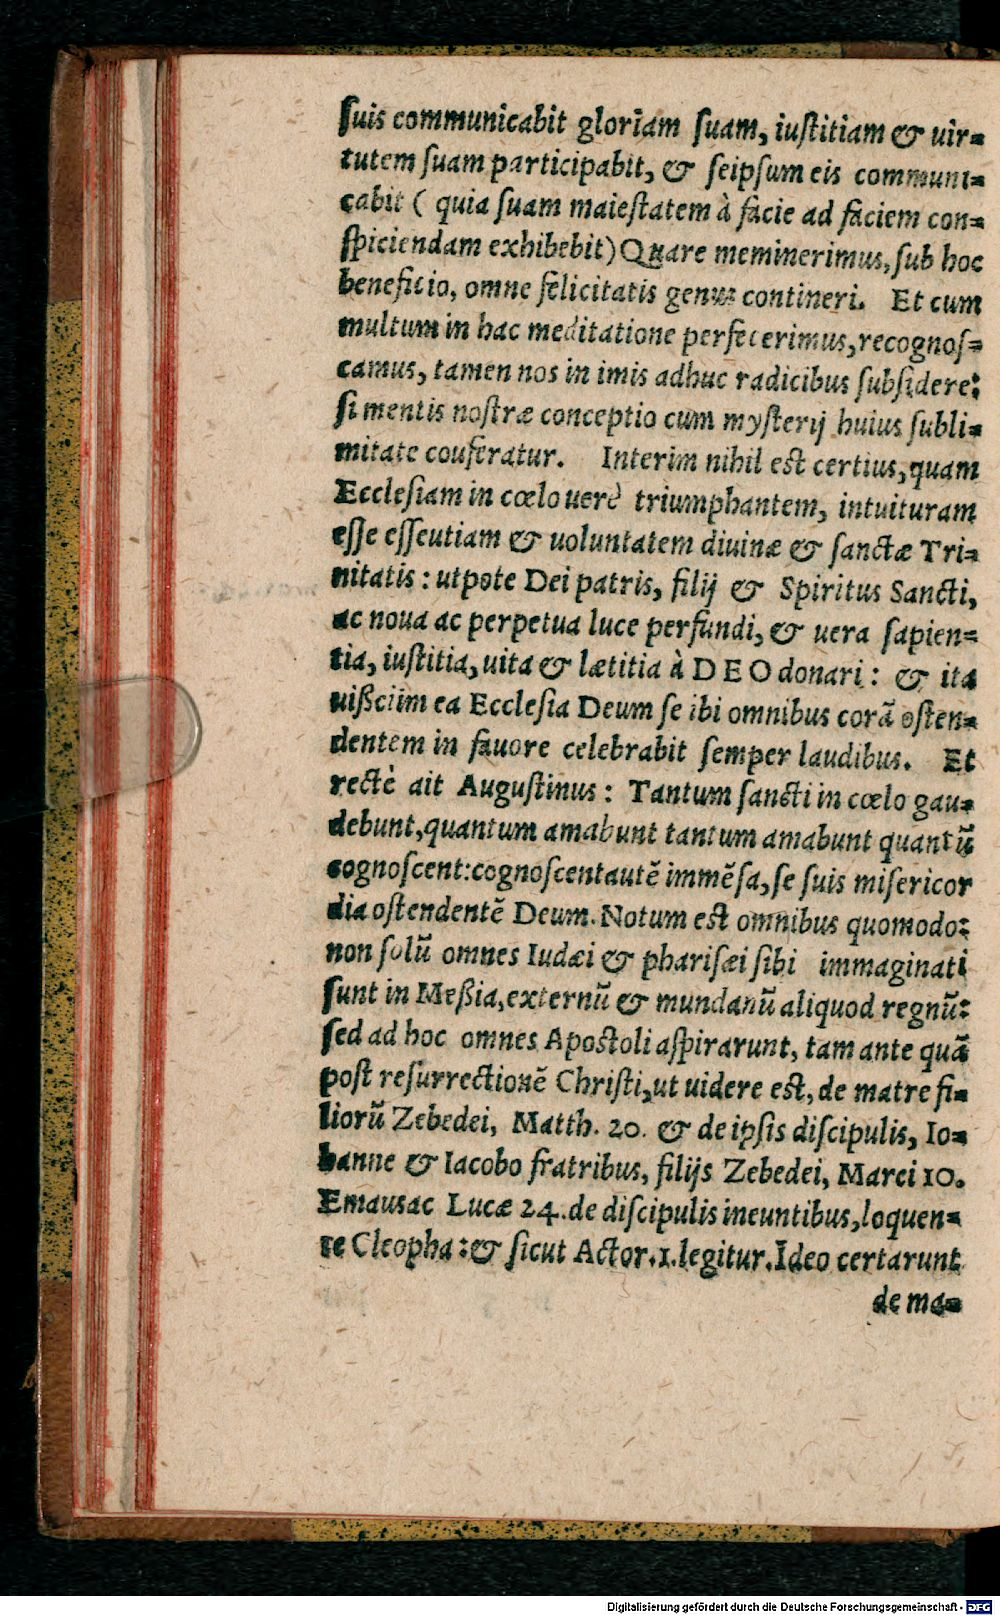 ſuis communicabit gloriam ſuam, iuſtitiam & uir=
tutem ſuam participabit, & ſeipſum eis communi=
cabit ( quia ſuam maieſtatem à facie ad faciem con=
ſpiciendam exhibebit) Quare meminerimus, ſub hoc
beneficio, omne felicitatis genus contineri. Et cum
multum in hac meditatione perfecerimus, recognoſ=
camus, tamen nos in imis adhuc radicibus ſubſidere:
ſi mentis noſtræ conceptio cum myſterij huius ſubli=
mitate couferatur. Interim nihil est certius, quam
Eccleſiam in cœlo uerè triumphantem, intuituram
eſſe eſſeutiam & uoluntatem diuinæ & ſanctæ Tri=
nitatis : utpote Dei patris, filij & Spiritus Sancti,
ac noua ac perpetua luce perfundi, & uera ſapien=
tia, iuſtitia, uita & lætitia à DEO donari : & ita
uißciim ea Eccleſia Deum ſe ibi omnibus corã oſten=
dentem in fauore celebrabit ſemper laudibus. Et
rectè ait Auguſtinus : Tantum ſancti in cœlo gau=
debunt, quantum amabunt tantum amabunt quantũ
cognoſcent: cognoſcent autẽ immẽſa, ſe ſuis miſericor
dia oſtendentẽ Deum. Notum est omnibus quomodo:
non ſolũ omnes Iudæi & phariſæi ſibi immaginati
ſunt in Meßia, externũ & mundanũ aliquod regnũ:
ſed ad hoc omnes Apoſtoli aſpirarunt, tam ante quã
poſt reſurrectionẽ Chriſti, ut uidere est, de matre fi=
liorũ Zebedei, Matth. 20. & de ipſis diſcipulis, Io=
hanne & Iacobo fratribus, filijs Zebedei, Marci 10.
Emausac Lucæ 24. de diſcipulis ineuntibus, loquen=
te Cleopha : & ſicut Actor. 1. legitur. Ideo certarunt
de ma=
Digitalisierung gefördert durch die Deutsche Forschungsgemeinschaft - DFG